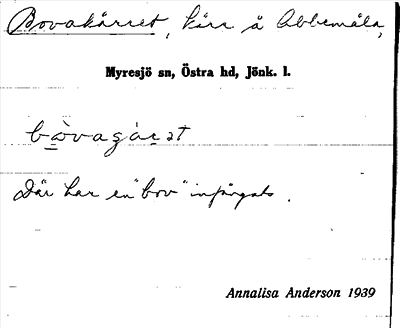 Bovakärret, kärr å Abbemåla,
Myresjö sn, Östra hd, Jönk. l.
Där har en "bov" infångats.
Annalisa Anderson 1939